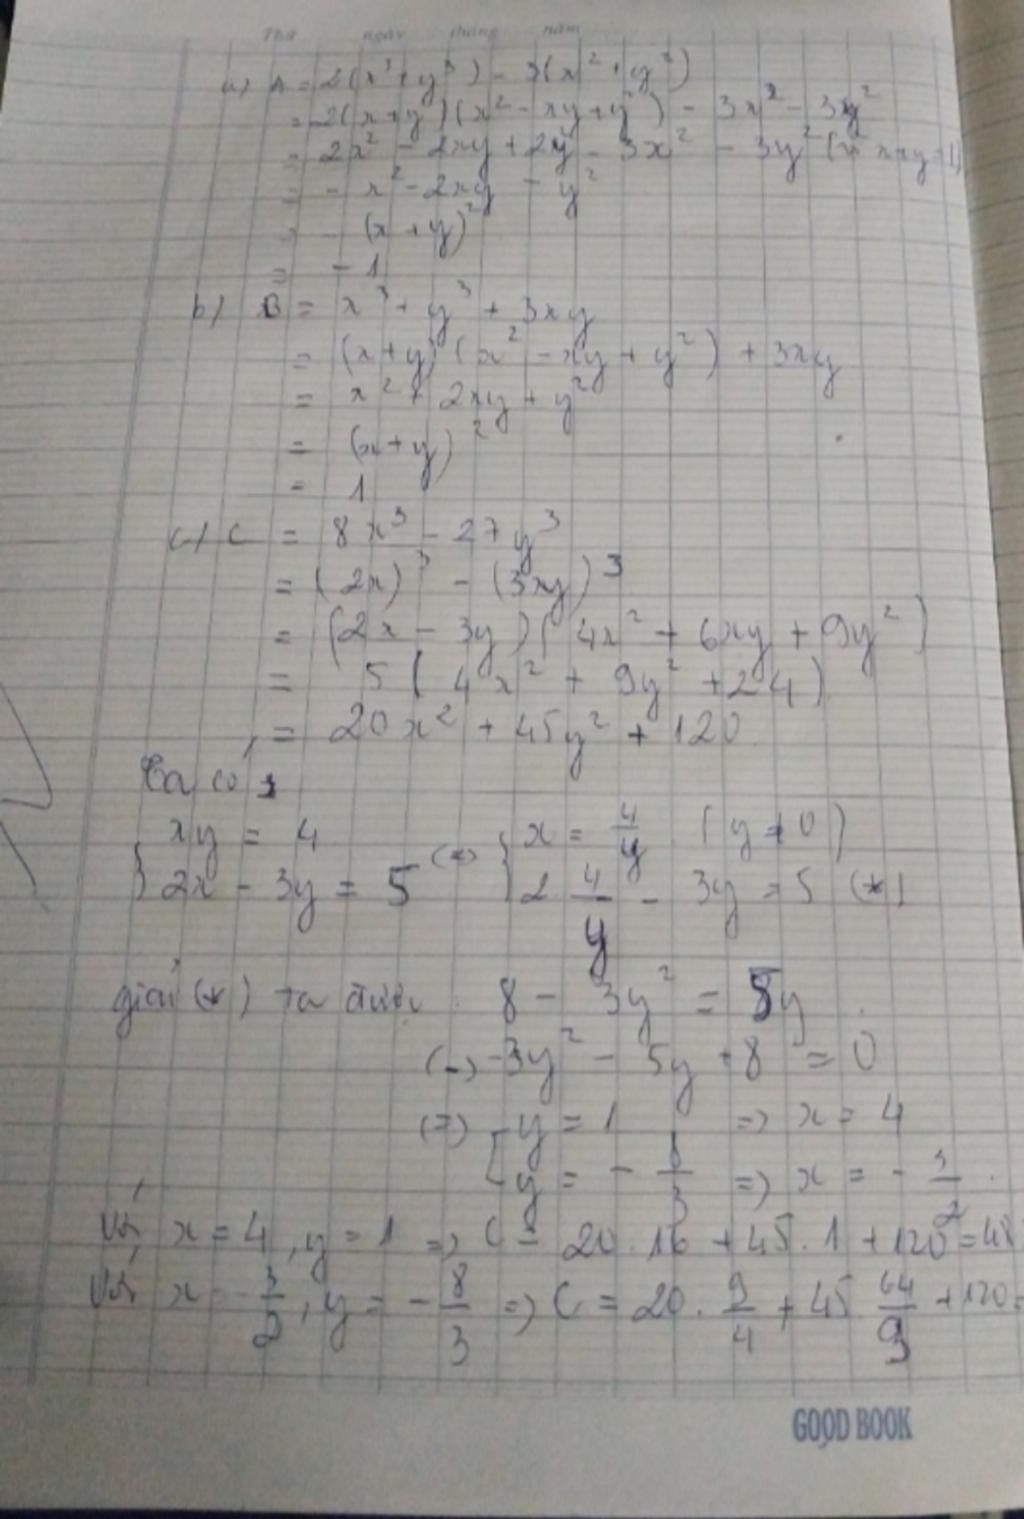 Thứ ngày tháng năm
a) A = 2(x³ + y³) - 3(x² + y²)
= 2(x + y)(x² - xy + y²) - 3x² - 3y²
= 2x² - 2xy + 2y² - 3x² - 3y² (vì x+y=1)
= - x² - 2xy - y²
= - (x + y)²
= - 1
b) B = x³ + y³ + 3xy
= (x+y)(x² - xy + y²) + 3xy
= x² + 2xy + y²
= (x+y)²
= 1
c) C = 8x³ - 27y³
= (2x)³ - (3xy)³
= (2x - 3y)(4x² + 6xy + 9y²)
= 5(4x² + 9y² + 24)
= 20x² + 45y² + 120
Ta có:
xy = 4 x = 4/y (y ≠ 0)
2x - 3y = 5 (=) 2 4/y - 3y = 5 (*)
giải (*) ta được 8 - 3y² = 5y
(=) -3y² - 5y + 8 = 0
(=) y = 1 => x = 4
y = - 8/3 => x = - 3/2
Với x = 4, y = 1 => C = 20.16 + 45.1 + 120 = 48
Với x = - 3/2, y = - 8/3 => C = 20. 9/4 + 45 64/9 + 120 =
GOOD BOOK